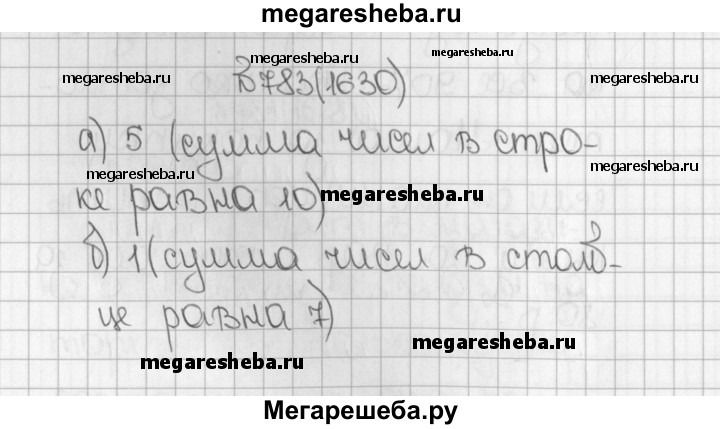 megaresheba.ru
megaresheba.ru
megaresheba.ru
megaresheba.ru
№783(1630)
megaresheba.ru
а) 5 (сумма чисел в стро-
megaresheba.ru
megaresheba.ru
ке равна 10)
megaresheba.ru
б) 1 (сумма чисел в столб-
це равна 7)
megaresheba.ru
megaresheba.ru
Мегарешеба.ру